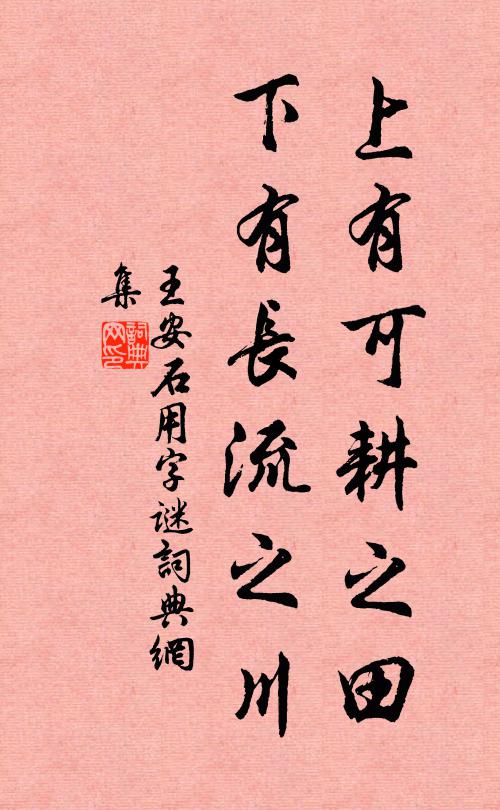 上有可耕之田
下有長流之川
王安石用字謎詞典網
集
詞典網印